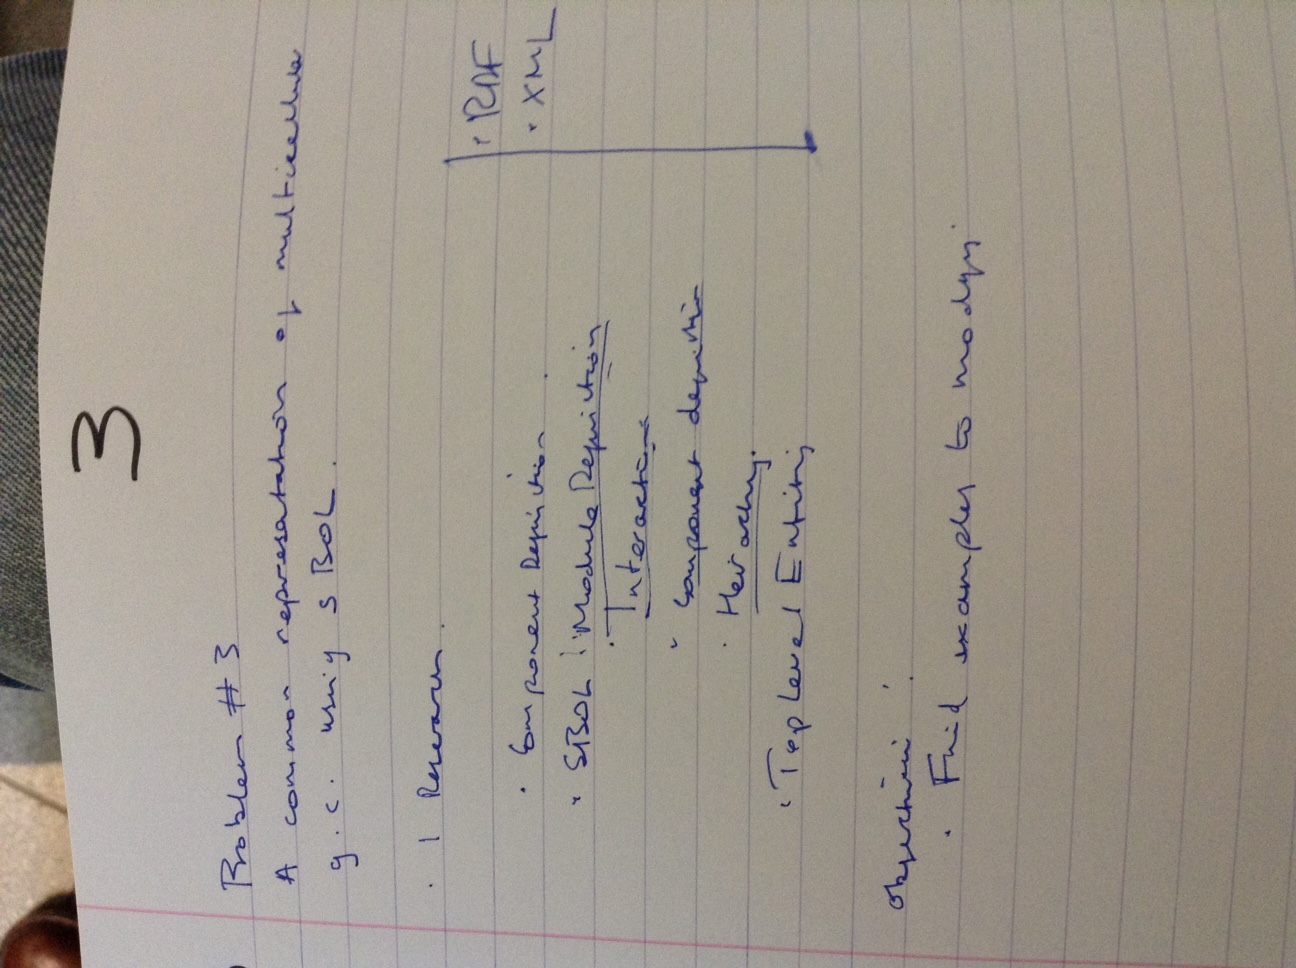 3
Problem # 3
A common represetation of multicellular
g.c. using SBOL.
· 1 Research.
· RDF
· XML
· Component Definition.
· SBOL | Module Definition
· Interactions
· Component definition
· Heirachy.
· Top Level Entities
Objective:
· Find examples to modify.